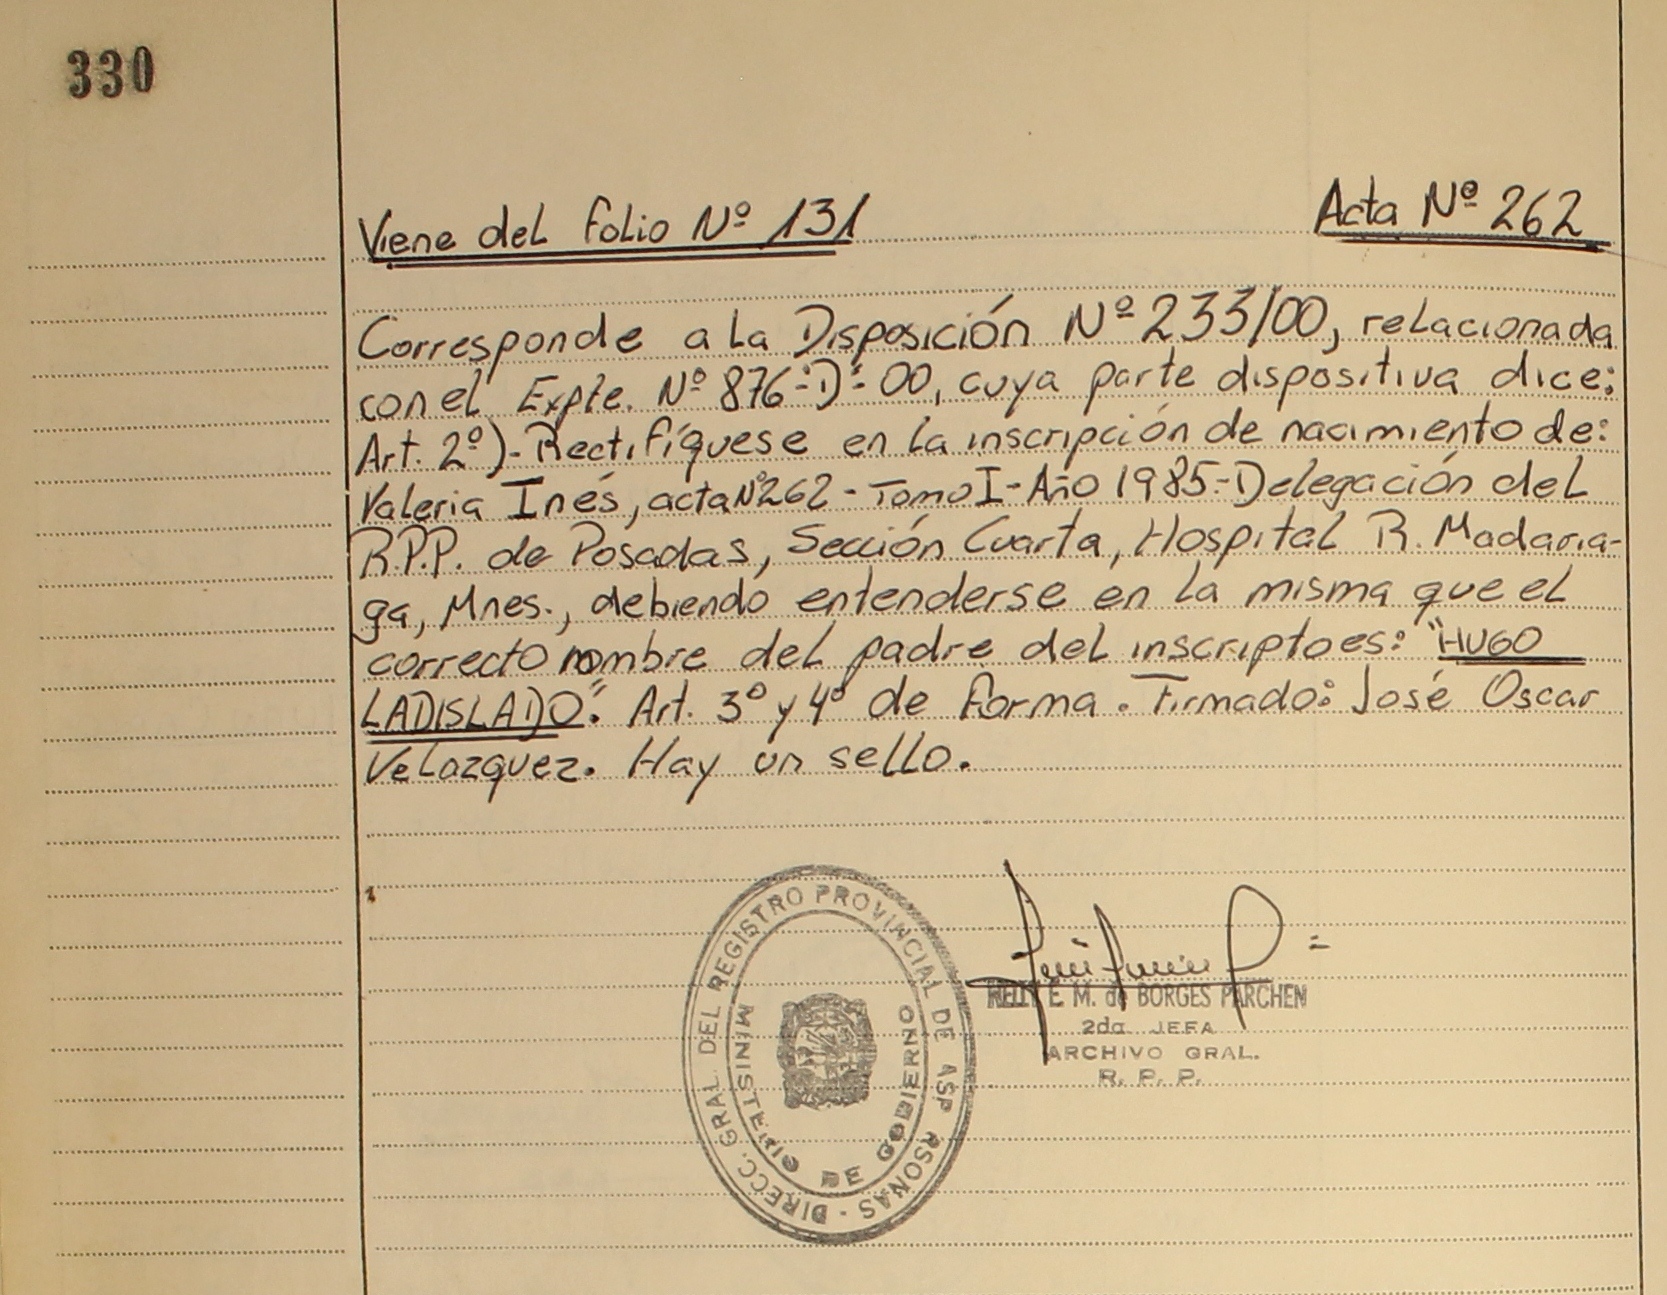 330
Viene del folio Nº 131
Acta Nº 262
Corresponde a la Disposición Nº 233/00, relacionada
con el Expte. Nº 876-"D"-00, cuya parte dispositiva dice:
Art. 2º)- Rectifíquese en la inscripción de nacimiento de:
Valeria Inés, acta Nº262 - Tomo I - Año 1985.- Delegación del
R.P.P. de Posadas, Sección Cuarta, Hospital R. Madaria-
ga, Mnes., debiendo entenderse en la misma que el
correcto nombre del padre del inscripto es: "HUGO
LADISLADO". Art. 3º y 4º de forma. Firmado: José Oscar
Velazquez. Hay un sello.
DIRECC. GRAL. DEL REGISTRO PROVINCIAL DE
MINISTERIO DE GOBIERNO
NELLY E. M. de BORGES PARCHEN
2da JEFA
ARCHIVO GRAL.
R. P. P.